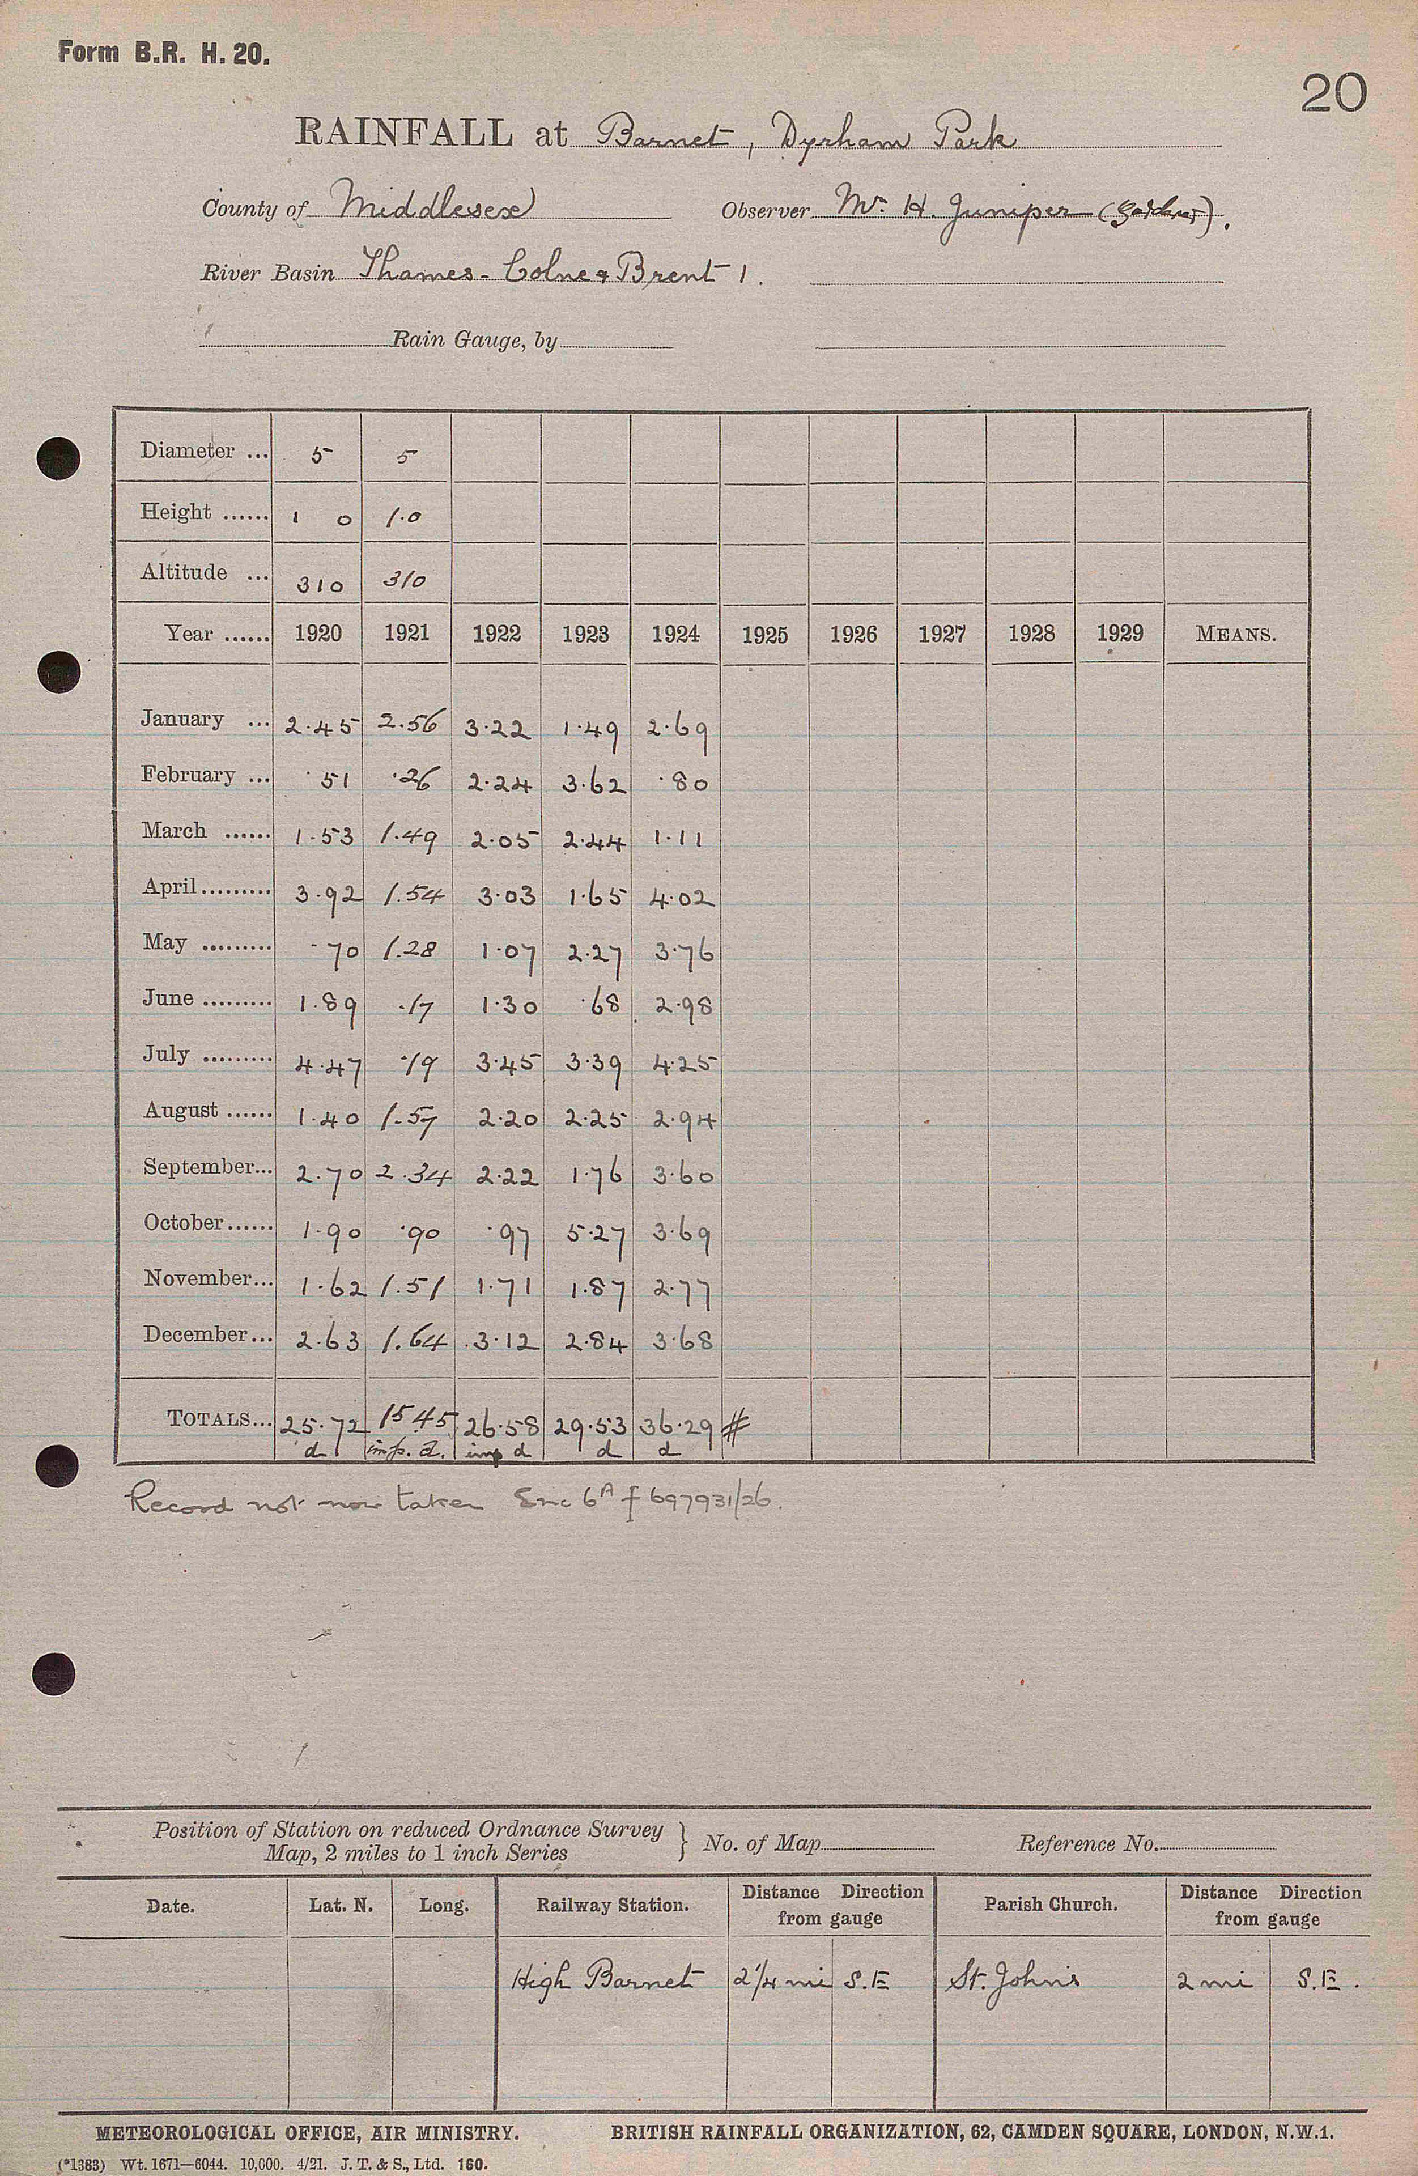 Form B.R. H. 20.
20
RAINFALL at Barnet, Dyrham Park
County of Middlesex Observer Mr. H. Juniper (Gardener).
River Basin Thames - Colne & Brent 1.
Rain Gauge, by
Diameter ... 5 5
Height ...... 1 0 1.0
Altitude ... 310 310
Year ...... 1920 1921 1922 1923 1924 1925 1926 1927 1928 1929 MEANS.
January ... 2.45 2.56 3.22 1.49 2.69
February ... .51 .26 2.24 3.62 .80
March ...... 1.53 1.49 2.05 2.44 1.11
April ......... 3.92 1.54 3.03 1.65 4.02
May ......... .70 1.28 1.07 2.27 3.76
June ......... 1.89 .17 1.30 .68 2.98
July ......... 4.47 .19 3.45 3.39 4.25
August ...... 1.40 1.57 2.20 2.25 2.94
September... 2.70 2.34 2.22 1.76 3.60
October...... 1.90 .90 .97 5.27 3.69
November... 1.62 1.51 1.71 1.87 2.77
December... 2.63 1.64 3.12 2.84 3.68
TOTALS... 25.72 15.45 26.58 29.53 36.29 #
d imp. d. imp d d d
Record not now taken Enc 6A f 697931/26.
Position of Station on reduced Ordnance Survey
Map, 2 miles to 1 inch Series } No. of Map Reference No.
Date. Lat. N. Long. Railway Station. Distance Direction from gauge Parish Church. Distance Direction from gauge
High Barnet 2 1/4 mi S.E St. John's 2 mi S.E.
METEOROLOGICAL OFFICE, AIR MINISTRY. BRITISH RAINFALL ORGANIZATION, 62, CAMDEN SQUARE, LONDON, N.W.1.
(*1383) Wt. 1671—6044. 10,000. 4/21. J. T. & S., Ltd. 160.